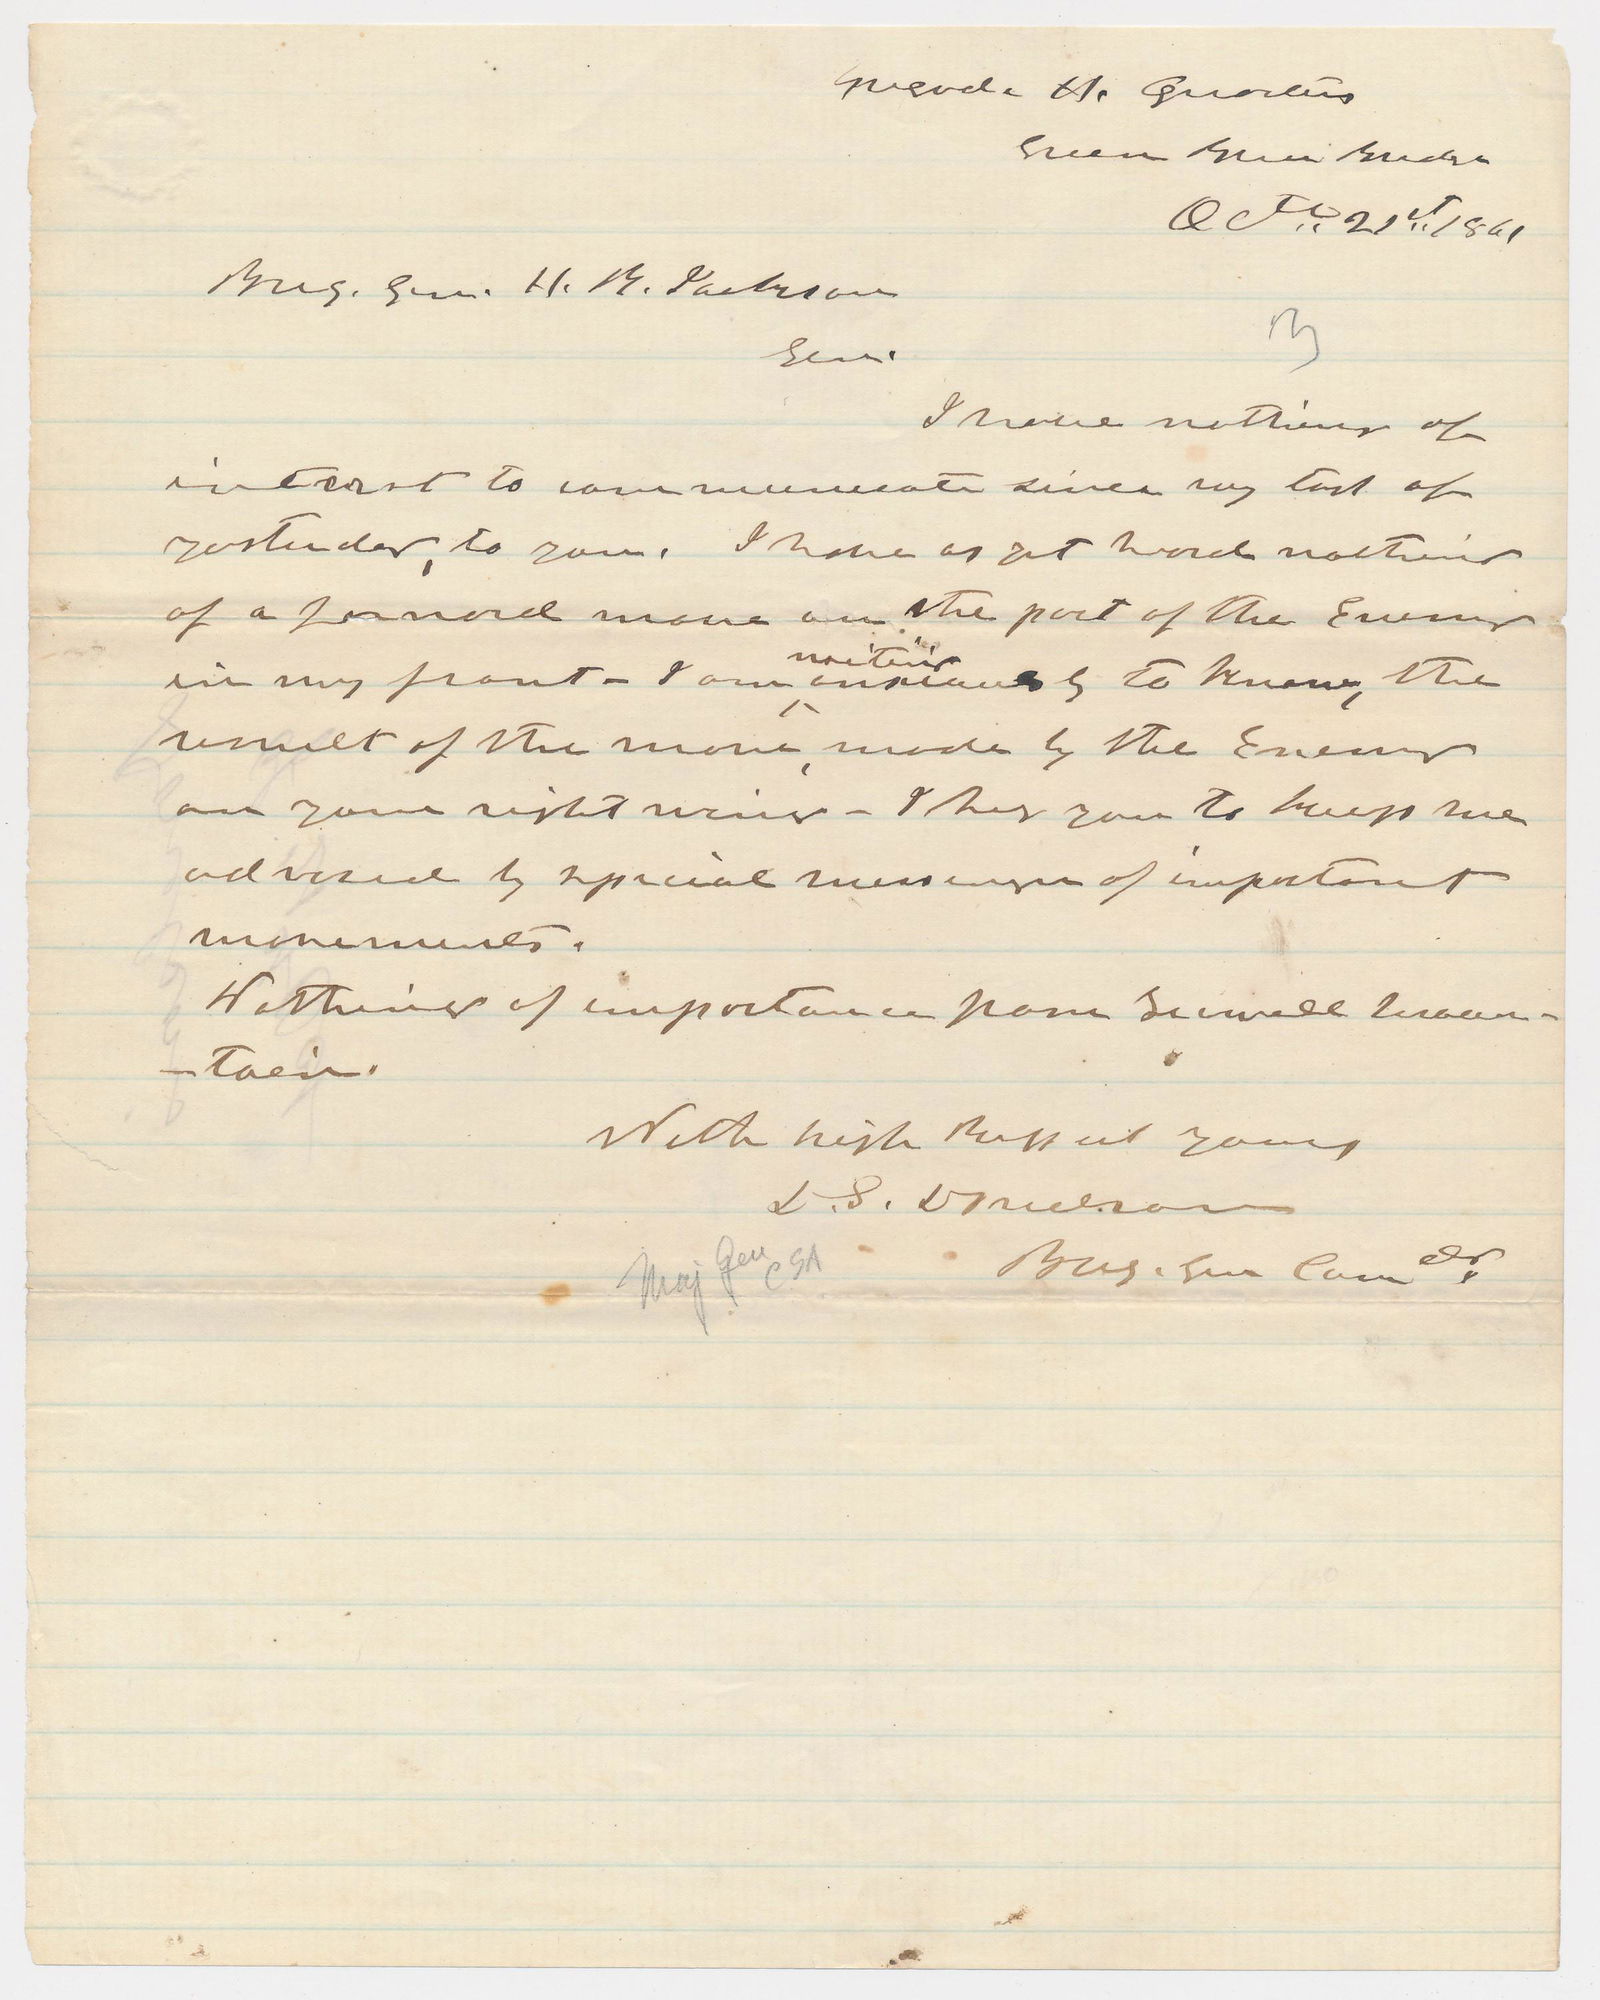 Brigade H. Quarters
Green Brier Bridge
Octo 21st 1861
Brig. Gen. H. R. Jackson
Gen.
I have nothing of
interest to communicate since my last of
yesterday, to you. I have as yet heard nothing
of a forward move on the part of the Enemy
in my front - I am waiting anxiously to know, the
result of the move, made by the Enemy
on your right wing - I beg you to keep me
advised by special messenger of important
movements.
Nothing of importance from Sewell Moun-
-tain.
With high Respect yours
D. S. Donelson
Maj Gen CSA
Brig. Gen Comdr.